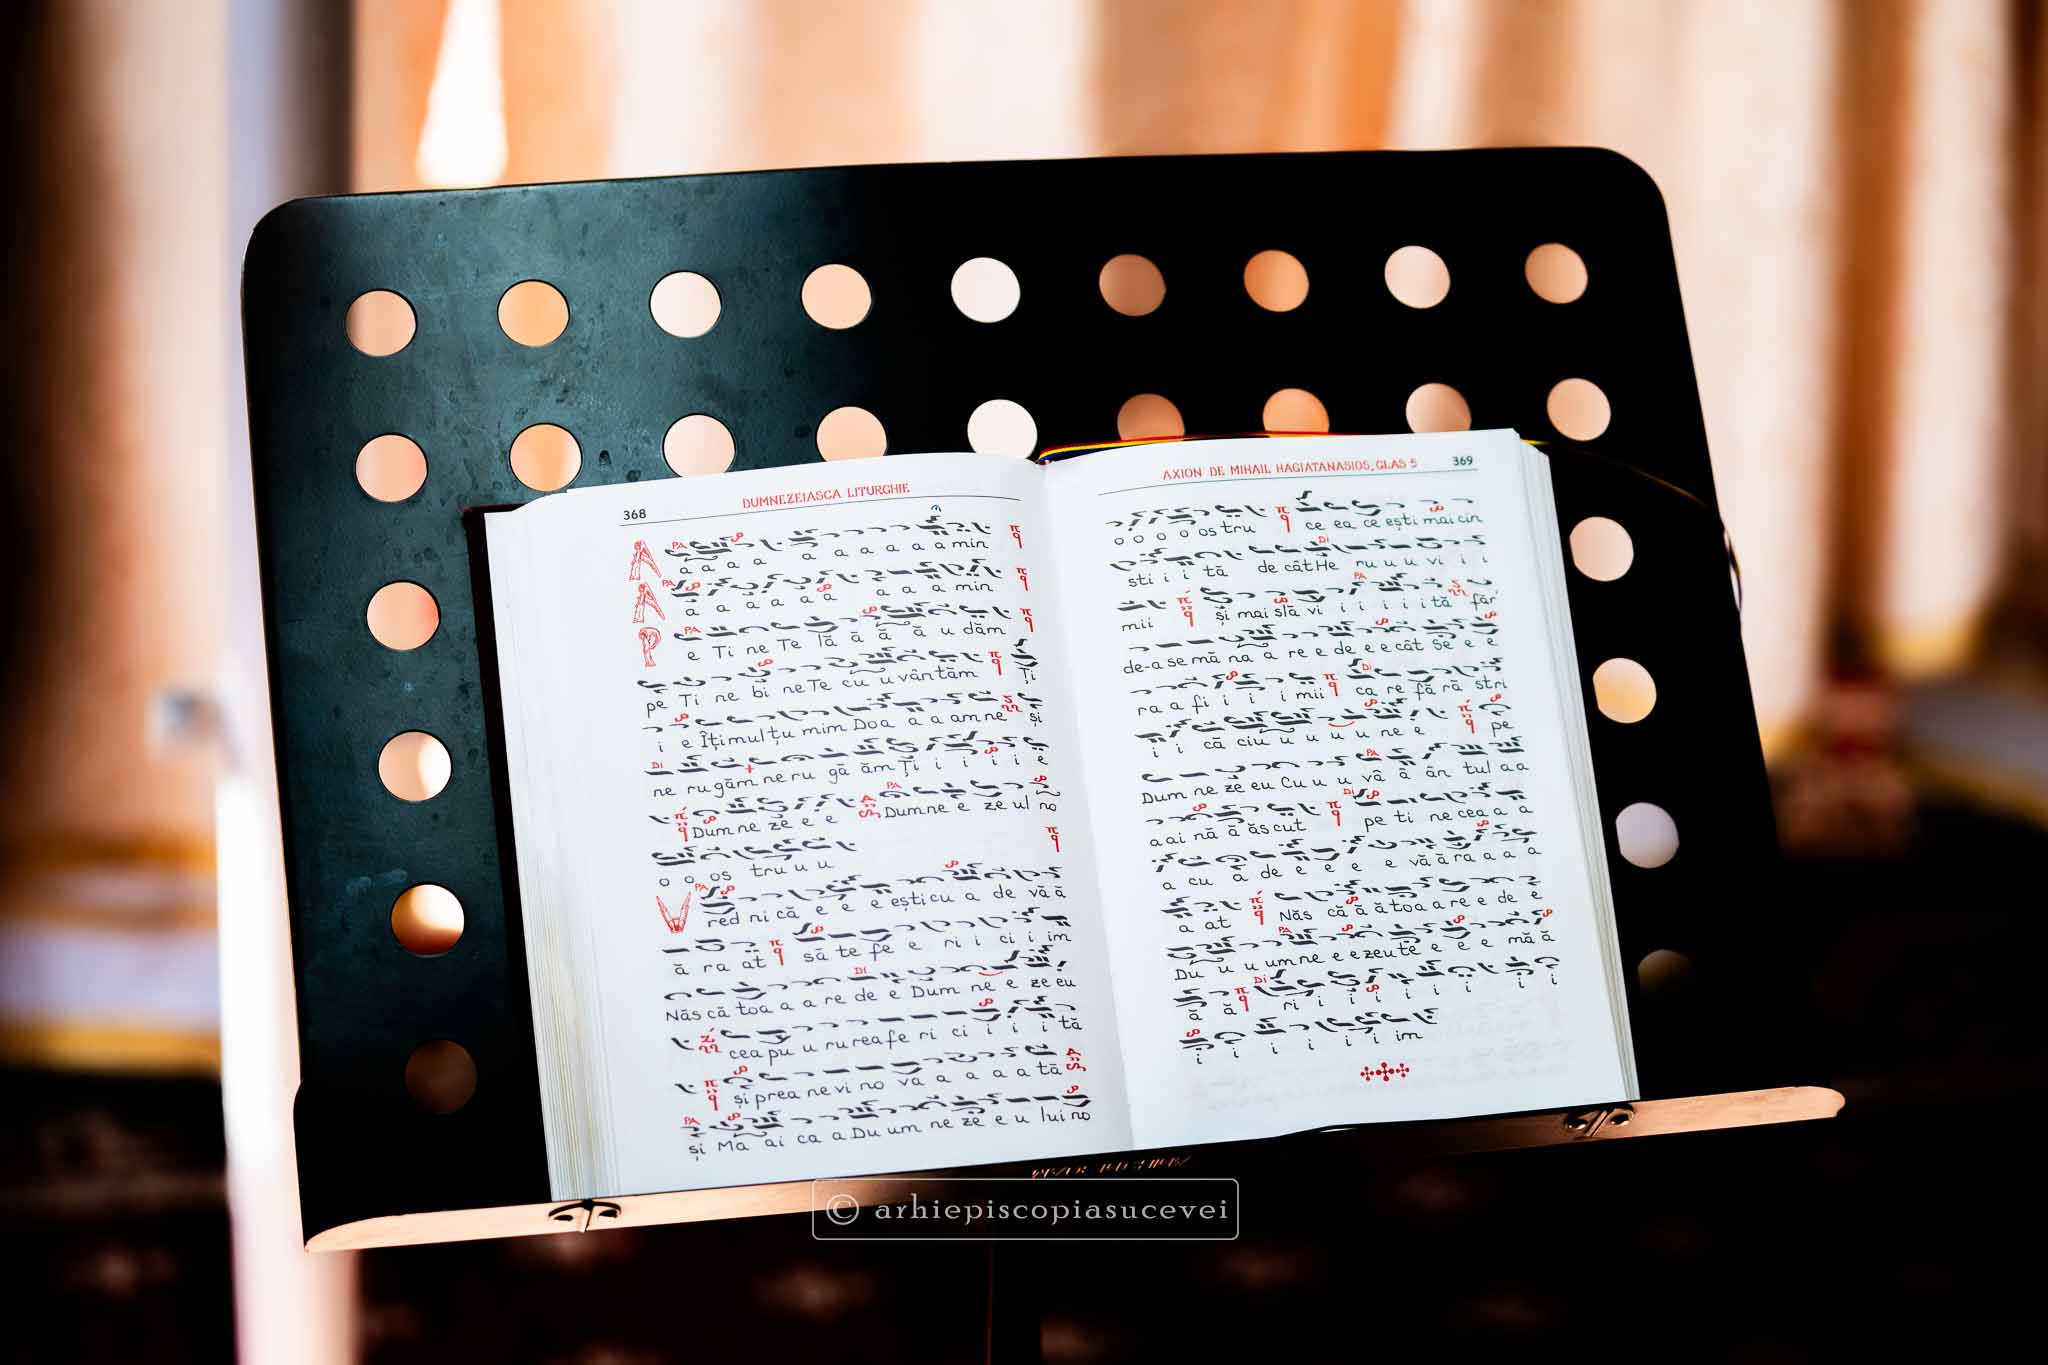 368 DUMNEZEIASCA LITURGHIE
PA ă a a a a a a a a a min
A ă a a a a a a a a min
P PA e Ti ne Te lă ă ă ă u dăm
pe Ti ne bi ne Te cu u vân tăm Ți
i e Îți mul țu mim Doa a a am ne și
DI ne ru găm ne ru gă ăm Ți i i i i e
Dum ne ze e e PA Dum ne e ze ul no
o o os tru u u
V PA red ni că e e e ești cu a de vă ă
ă ra at să te fe e ri i ci i im
DI Năs că toa a a re de e Dum ne e ze eu
cea pu u ru rea fe ri ci i i i tă
și prea ne vi no va a a a a tă
PA și Ma ai ca a Du um ne ze e u lui no
AXION DE MIHAIL HAGIATANASIOS, GLAS 5 369
o o o o os tru ce ea ce ești mai cin
DI sti i i tă de cât He ru u u vi i i
PA mii și mai slă vi i i i i tă făr'
de-a se mă na a re e de e e cât Se e e
DI ra a fi i i i mii ca re fă ră stri
i i că ciu u u u u ne e pe
PA Dum ne ze eu Cu u u vâ â ân tul a a
DI a ai nă ă ăs cut pe ti ne cea a a
a cu a de e e e e vă ă ra a a a
a at Năs că ă ă toa a re e de e
PA Du u u um ne e e ze u te e e e mă ă
DI ă ă ri i i i i i i i
i i i i i i im
© arhiepiscopiasucevei